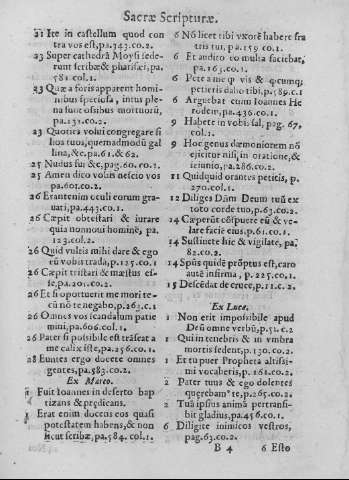 Sacræ Scripturæ.
21 Ite in castellum quod con
tra vos est, pa.343.co.2.
23 Super cathedrã Moysi sede-
runt scribæ & pharisæi, pa.
581. col.1.
23 Quæ a foris apparent homi
nibus speciosa, intus ple-
na sunt ossibus mortuorũ,
pa.131.co.2.
23 Quoties volui congregare fi
lios tuos, quemadmodũ gal
lina, &c. pa.61. & 62.
25 Nudus fui &c, pag.60.co.2.
25 Amen dico vobis nescio vos
pa.601.co.2.
26 Erant enim oculi eorum gra-
uati, pa.443.co.1.
26 Cæpit obtestari & iurare
quia non noui hominẽ, pa
123.col.2.
26 Quid vultis mihi dare & ego
eũ vobis tradã, p.125.co.1
26 Cæpit tristari & mæstus es-
se, pa.201.co.2.
26 Et si oportuerit me mori te-
cũ nõ te negabo, p.263.c.1
26 Omnes vos scandalum patie
mini, pa.606.col.1.
26 Pater si possibile est trãseat a
me calix iste, pa.256.co.1.
28 Euntes ergo docete omnes
gentes, pa.583.co.2.
Ex Marco.
1 Fuit Ioannes in deserto bap
tizans & prędicans.
1 Erat enim docens eos quasi
potestatem habens, & non
sicut scribæ, pa.584. col.1.
6 Nõ licet tibi vxorẽ habere fra
tris tui, pa.159.co.1.
6 Et audito eo multa faciebat,
pa.163.co.1.
6 Pete a me quod vis & quodcumque
petieris dabo tibi, p.589.c.1
6 Arguebat enim Ioannes He
rodem, pa.436.co.1.
9 Habete in vobis sal, pag. 67,
col.1.
9 Hoc genus dæmoniorem nõ
eijcitur nisi, in oratione, &
ieiunio, pa.286.co.2.
11 Quidquid orantes petitis, p.
270.col.1.
12 Diliges Dñm Deum tuũ ex
toto corde tuo, p.63.co.2.
14 Cæperũt cõspuere eũ & ve-
lare facie eius, p.61.co.1.
14 Sustinete hic & vigilate, pa
82.co.2.
14 Spũs quidẽ prõptus est, caro
autẽ infirma, p. 225.co.1.
15 Descẽdat de cruce, p.11.c.2.
Ex Luca.
1 Non erit impossibile apud
Deũ omne verbũ, p.51.c.2
1 Qui in tenebris & in vmbra
mortis sedent, p.130.co.2.
1 Et tu puer Propheta altissi-
mi vocaberis, p.162.co.2.
2 Pater tuus & ego dolentes
querebamꝰ te, p.265.co.2.
2 Tuã ipsius animã pertransi-
bit gladius, pa.456.co.1.
6 Diligite inimicos vestros,
pag.63.co.2.
B 4
6 Esto